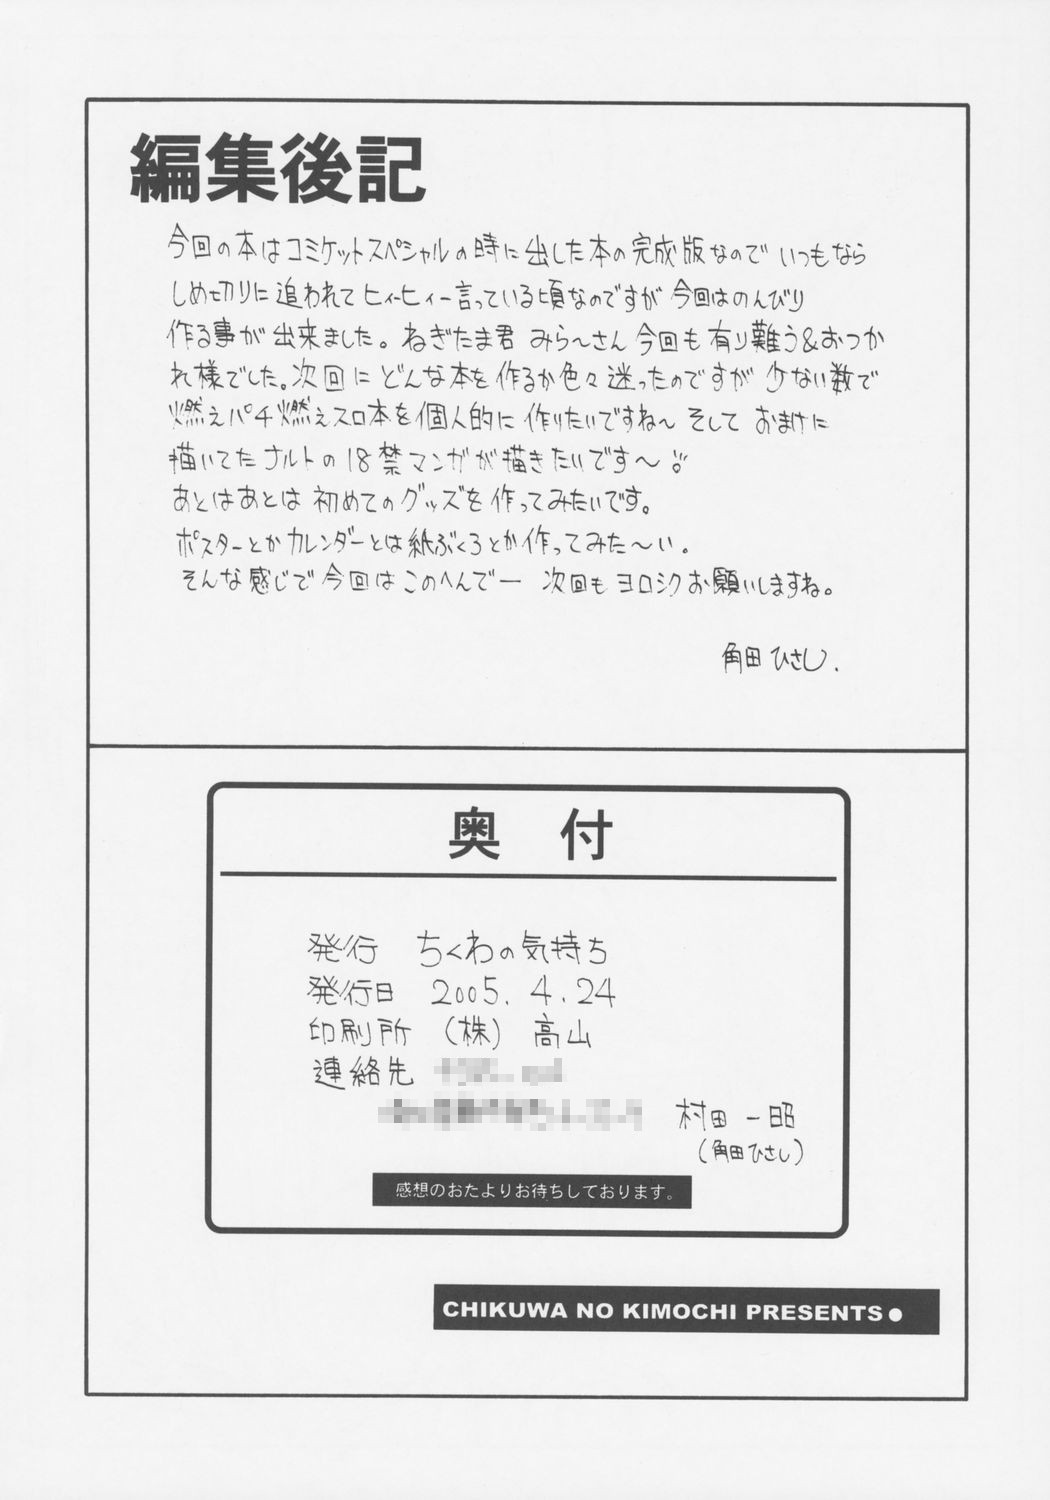 編集後記
今回の本はコミケットスペシャルの時に出した本の完成版なので いつもなら
しめ切りに追われて ヒィーヒィー言っている頃なのですが 今回はのんびり
作る事が出来ました。ねぎたま君 みら〜さん 今回も有り難う&おつか
れ様でした。次回に どんな本を作るか色々迷ったのですが 少ない数で
燃えパチ燃えスロ本を個人的に 作りたいですね〜 そして おまけに
描いてたナルトの18禁マンガが描きたいです〜
あとはあとは 初めてのグッズを作ってみたいです。
ポスターとかカレンダーとは紙ぶくろとか作ってみた〜い。
そんな感じで 今回は このへんでー 次回も ヨロシクお願いしますね。
角田ひさし.
奥 付
発行 ちくわの気持ち
発行日 2005.4.24
印刷所 (株) 高山
連絡先
村田 一昭
(角田ひさし)
感想のおたよりお待ちしております。
CHIKUWA NO KIMOCHI PRESENTS●